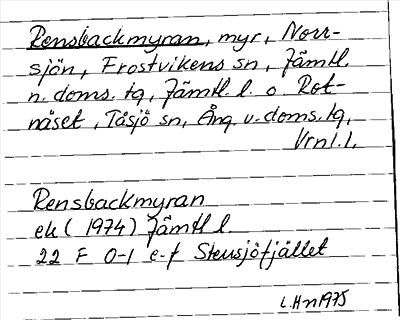 Rensbackmyran, myr, Norr-
sjön, Frostvikens sn, Jämtl.
n. doms. tg, Jämtl. l. o. Rot-
näset, Tåsjö sn, Ång. v. doms. tg,
Vrnl. l.
Rensbackmyran
ek (1974) Jämtl l.
22 F 0-1 e-f Stensjöfjället
L.Hn 1975